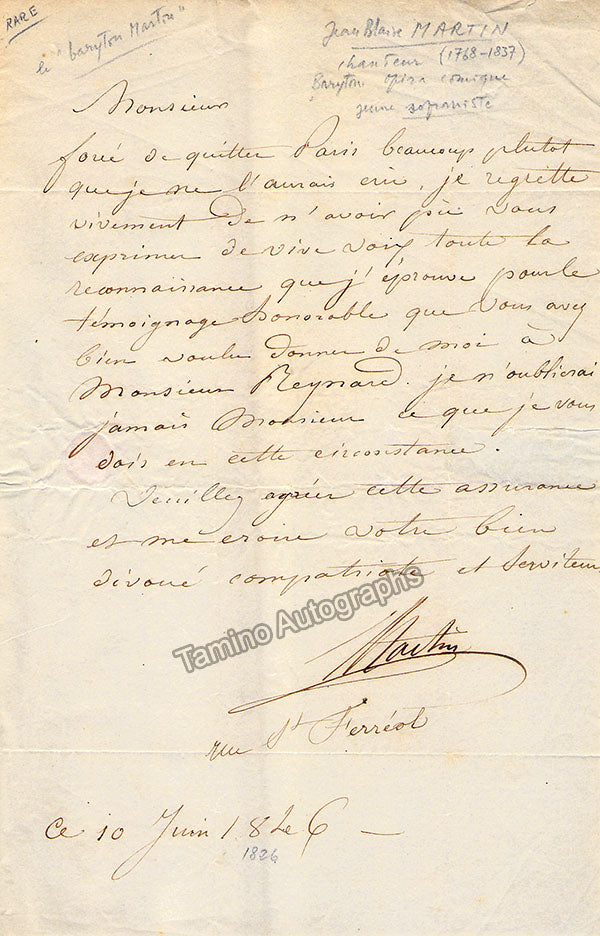 RARE
le "baryton Martin"
Jean Blaise MARTIN
chanteur (1768-1837)
Baryton Opéra comique
jeune sopraniste
Monsieur
forcé de quitter Paris beaucoup plutot
que je ne l'aurais crû, je regrette
vivement de n'avoir pû vous
exprimer de vive voix toute la
reconnaissance que j'éprouve pour le
témoignage honorable que vous avez
bien voulu donner de moi à
Monsieur Reynard. je n'oublierai
jamais Monsieur ce que je vous
dois en cette circonstance.
Veuillez agréer cette assurance
et me croire votre bien
dévoué compatriote et serviteur
Martin
Tamino Autographs
rue St Ferréol
Ce 10 Juin 1826
1826